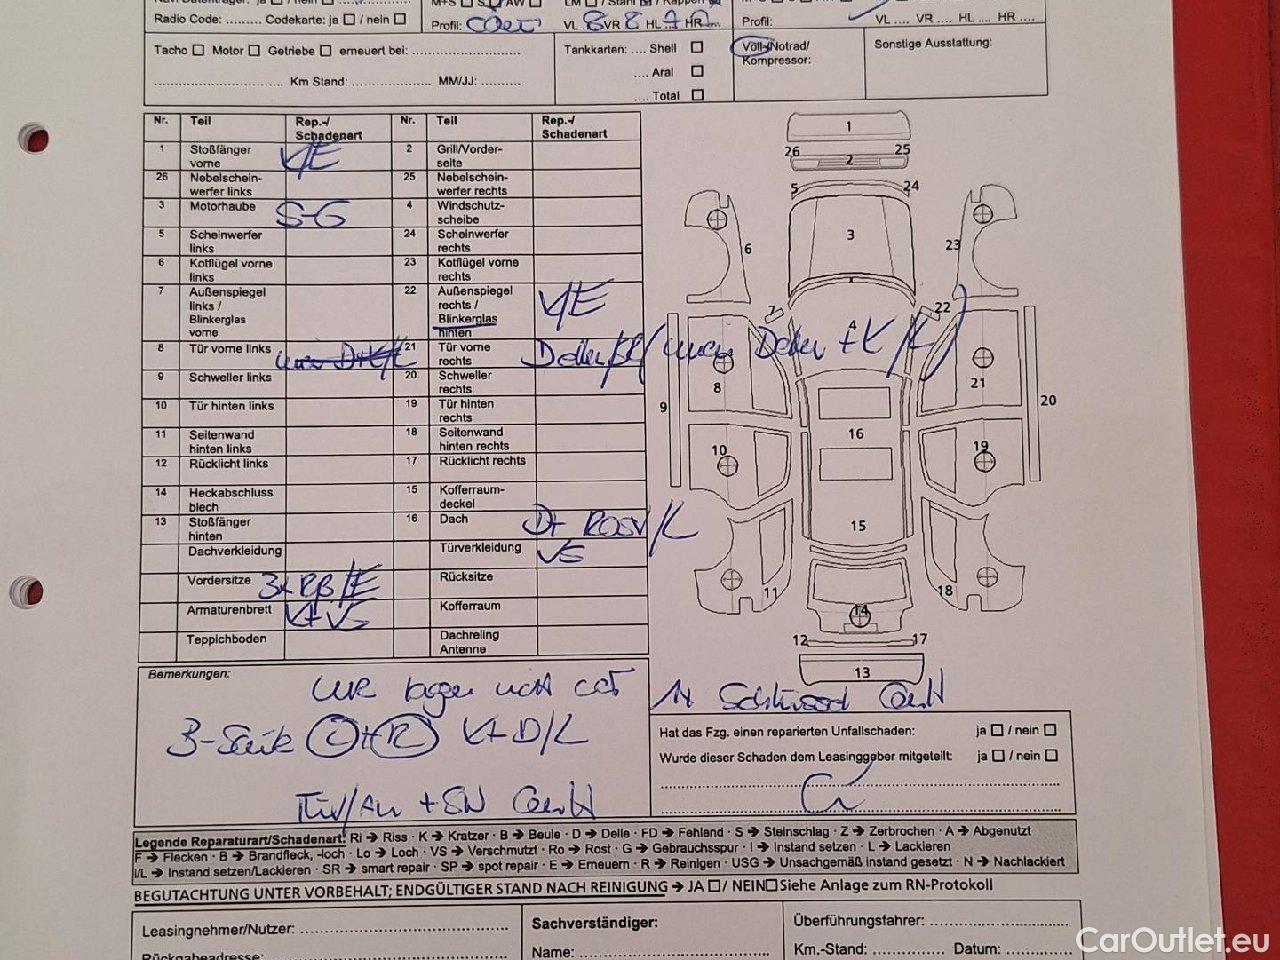 Radio Code: ......... Codekarte: ja ☐ / nein ☐
Profil:
VL 8 VR 8 HL 7 HR
Profil:
VL .... VR .... HL .... HR ....
Tacho ☐ Motor ☐ Getriebe ☐ erneuert bei: ....................
Km Stand: .................... MM/JJ: ..........
Tankkarten: .... Shell ☐
.... Aral ☐
.... Total ☐
Voll-/Notrad/
Kompressor:
Sonstige Ausstattung:
Nr. Teil Rep.-/ Schadenart Nr. Teil Rep.-/ Schadenart
1 Stoßfänger vorne K/E 2 Grill/Vorder-seite
26 Nebelschein-werfer links 25 Nebelschein-werfer rechts
3 Motorhaube S-G 4 Windschutz-scheibe
5 Scheinwerfer links 24 Scheinwerfer rechts
6 Kotflügel vorne links 23 Kotflügel vorne rechts
7 Außenspiegel links / Blinkerglas vorne 22 Außenspiegel rechts / Blinkerglas hinten K/E
8 Tür vorne links 21 Tür vorne rechts
9 Schweller links 20 Schweller rechts
10 Tür hinten links 19 Tür hinten rechts
11 Seitenwand hinten links 18 Seitenwand hinten rechts
12 Rücklicht links 17 Rücklicht rechts
14 Heckabschluss blech 15 Kofferraum-deckel
13 Stoßfänger hinten 16 Dach
Dachverkleidung Türverkleidung VS
Vordersitze Rücksitze
Armaturenbrett K+VS Kofferraum
Teppichboden Dachreling Antenne
1
26 25
2
5 24
3
6 23
7 22
4
8 21
9 20
16
10 19
15
11 18
14
12 17
13
Bemerkungen:
B-Säule
Hat das Fzg. einen reparierten Unfallschaden: ja ☐ / nein ☐
Wurde dieser Schaden dem Leasinggeber mitgeteilt: ja ☐ / nein ☐
Legende Reparaturart/Schadenart: Ri → Riss · K → Kratzer · B → Beule · D → Delle · FD → Fehlend · S → Steinschlag · Z → Zerbrochen · A → Abgenutzt
F → Flecken · B → Brandfleck, -loch · Lo → Loch · VS → Verschmutzt · Ro → Rost · G → Gebrauchsspur · I → Instand setzen · L → Lackieren
I/L → Instand setzen/Lackieren · SR → smart repair · SP → spot repair · E → Erneuern · R → Reinigen · USG → Unsachgemäß instand gesetzt · N → Nachlackiert
BEGUTACHTUNG UNTER VORBEHALT; ENDGÜLTIGER STAND NACH REINIGUNG → JA ☐ / NEIN ☐ Siehe Anlage zum RN-Protokoll
Leasingnehmer/Nutzer: ..............................
Sachverständiger:
Überführungsfahrer: ....................
Rückgabeadresse:
Name: ..............................
Km.-Stand: .............. Datum: ..........
CarOutlet.eu